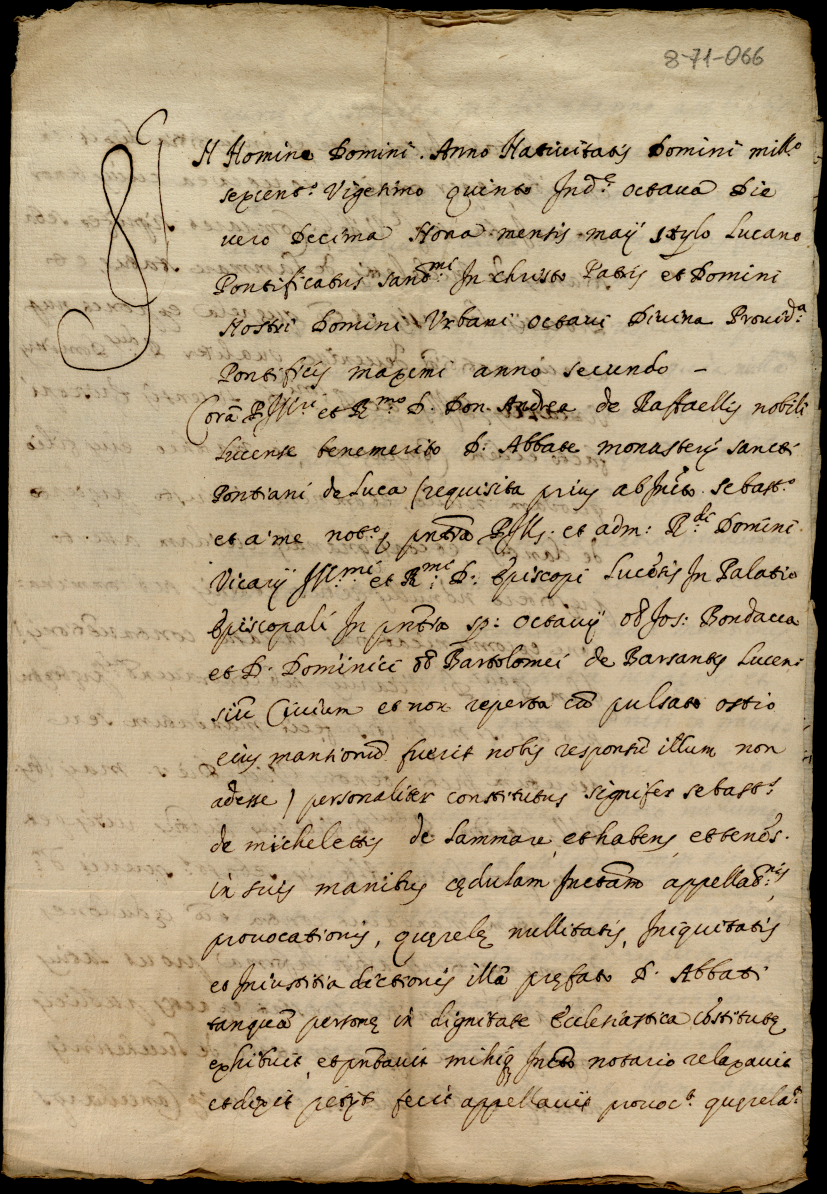 8-71-066
In Nomine Domini. Anno Nativitatis Domini mill.o
sexcent.o Vigesimo quinto Ind.e octava Die
vero Decima Nona mensis maij stylo Lucano
Pontificatus sanct.mi In christo Patris et Domini
Nostri Domini Urbani octavi Divina Provid.a
Pontificis maximi anno secundo –
Corã et R.mo D. Don. Andrea de Raffaellis nobili
Lucense benemerito D: Abbate monasterij sancti
Pontiani de Luca (requisita prius ab sebast.o
et a me not.o et adm: R.di Domini
Vicarij Ill.mi et R.mi D. Episcopi Lucẽsis In Palatio
Episcopali In sp: Octavij Jos: Bondacca
et D. Dominici Bartolomei de Barsantis Lucen
siũ Civium et non reperta cũ pulsato ostio
eius mantionis fuerit nobis responsũ illum non
adesse) personaliter constitutus signifer sebast.s
de michelettis de Lammare et habens et tenẽs.
in suis manibus cędulam appellaõ.nis
provocationis, querelę nullitatis, Iniquitatis
et Iniustitia dictionis illã pręfato D. Abbati
tanquã personę in dignitate Ecclesiastica cõstitutę
exhibuit, et pñtavit mihiq notario relaxavit
et dixit petijt fecit appellavit provoc.t querela.t